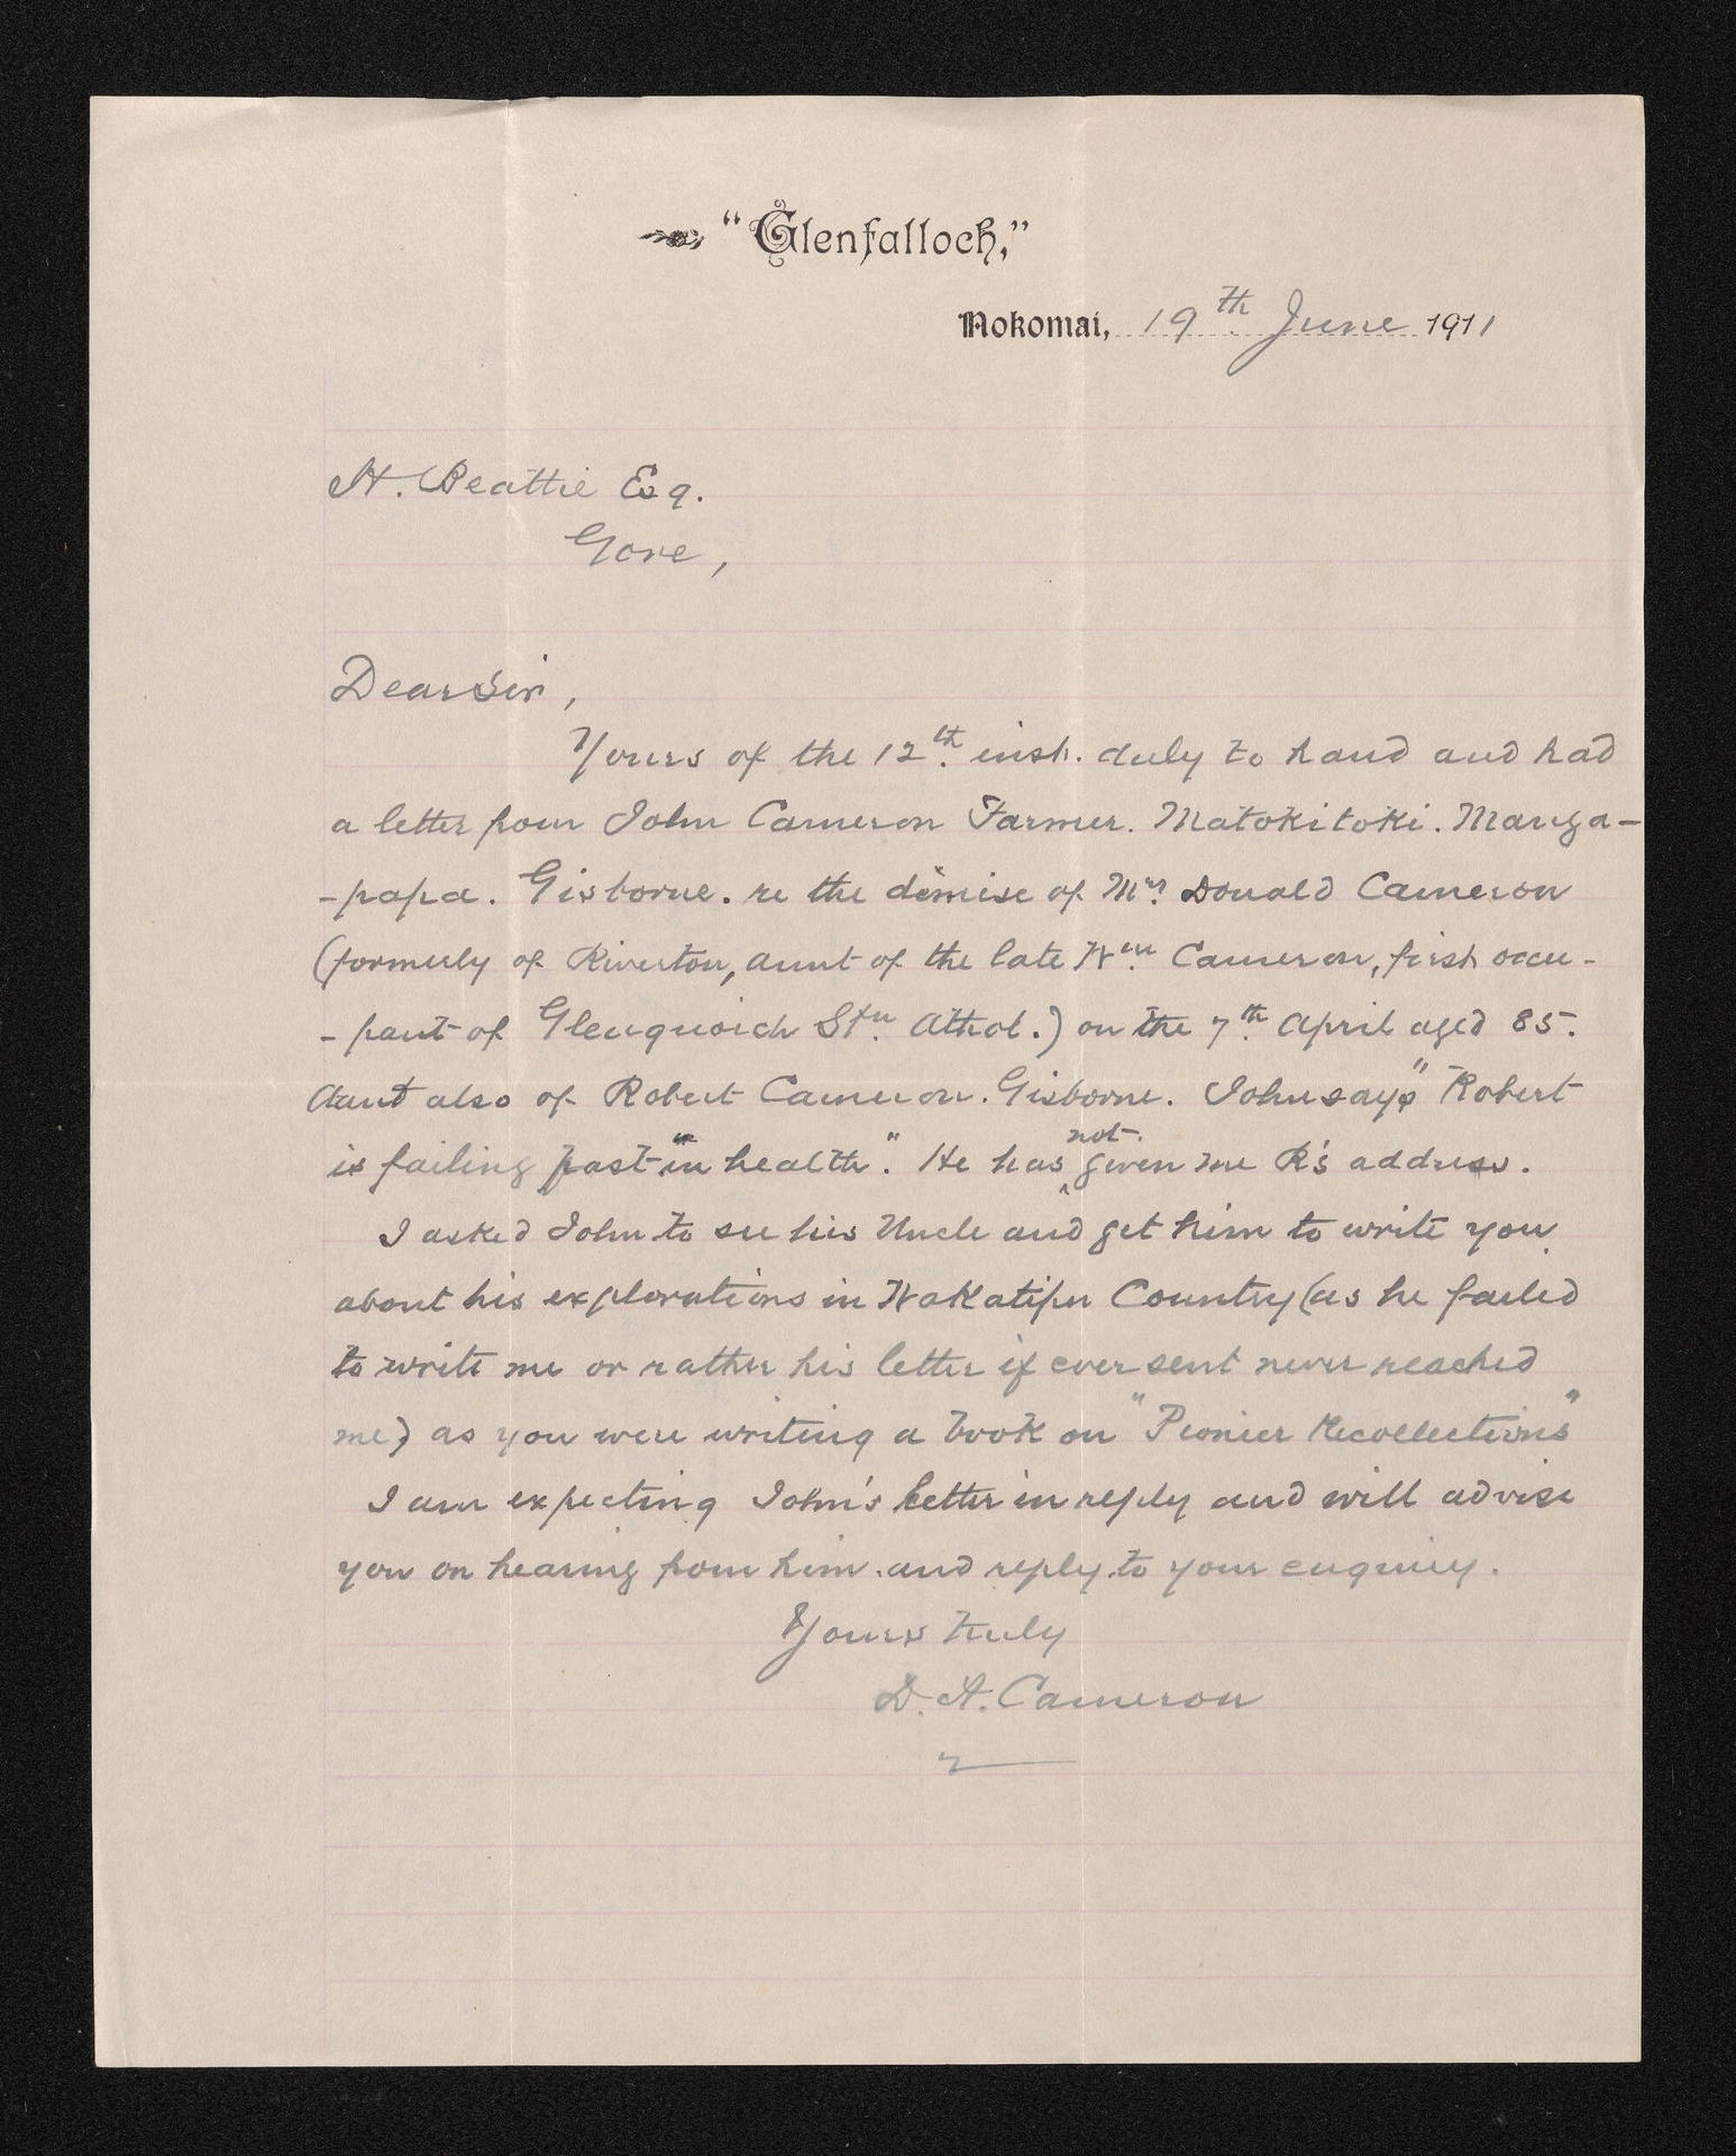 "Glenfalloch,"
Nokomai, 19th June 1911
H. Beattie Esq.
Gore,
Dear Sir,
Yours of the 12th inst. duly to hand and had
a letter from John Cameron Farmer. Matokitoki. Manga-
-papa. Gisborne. re the demise of Mrs Donald Cameron
(formerly of Riverton, aunt of the late Wm Cameron, first occu-
-pant of Glenquoich Stn. Athol.) on the 7th April aged 85.
Aunt also of Robert Cameron. Gisborne. John says "Robert
is failing fast "in health". He has not given me R's address.
I asked John to see his Uncle and get him to write you
about his explorations in Wakatipu Country (as he failed
to write me or rather his letter if ever sent never reached
me) as you were writing a book on "Pionier Recollections"
I am expecting John's letter in reply and will advise
you on hearing from him. and reply to your enquiry.
Yours truly
D. A. Cameron